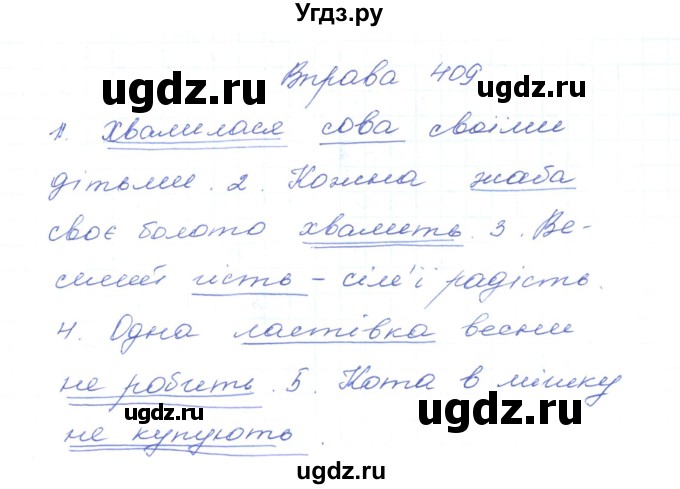 Угдз.ру
Вправа 409
1. Хвалилася сова своїми
дітьми. 2. Кожна жаба
своє болото хвалить. 3. Ве-
селий гість – сім'ї радість.
4. Одна ластівка весни
не робить. 5. Кота в мішку
не купують.
ugdz.ru
ugdz.ru
ugdz.ru
ugdz.ru
ugdz.ru
ugdz.ru
ugdz.ru
ugdz.ru